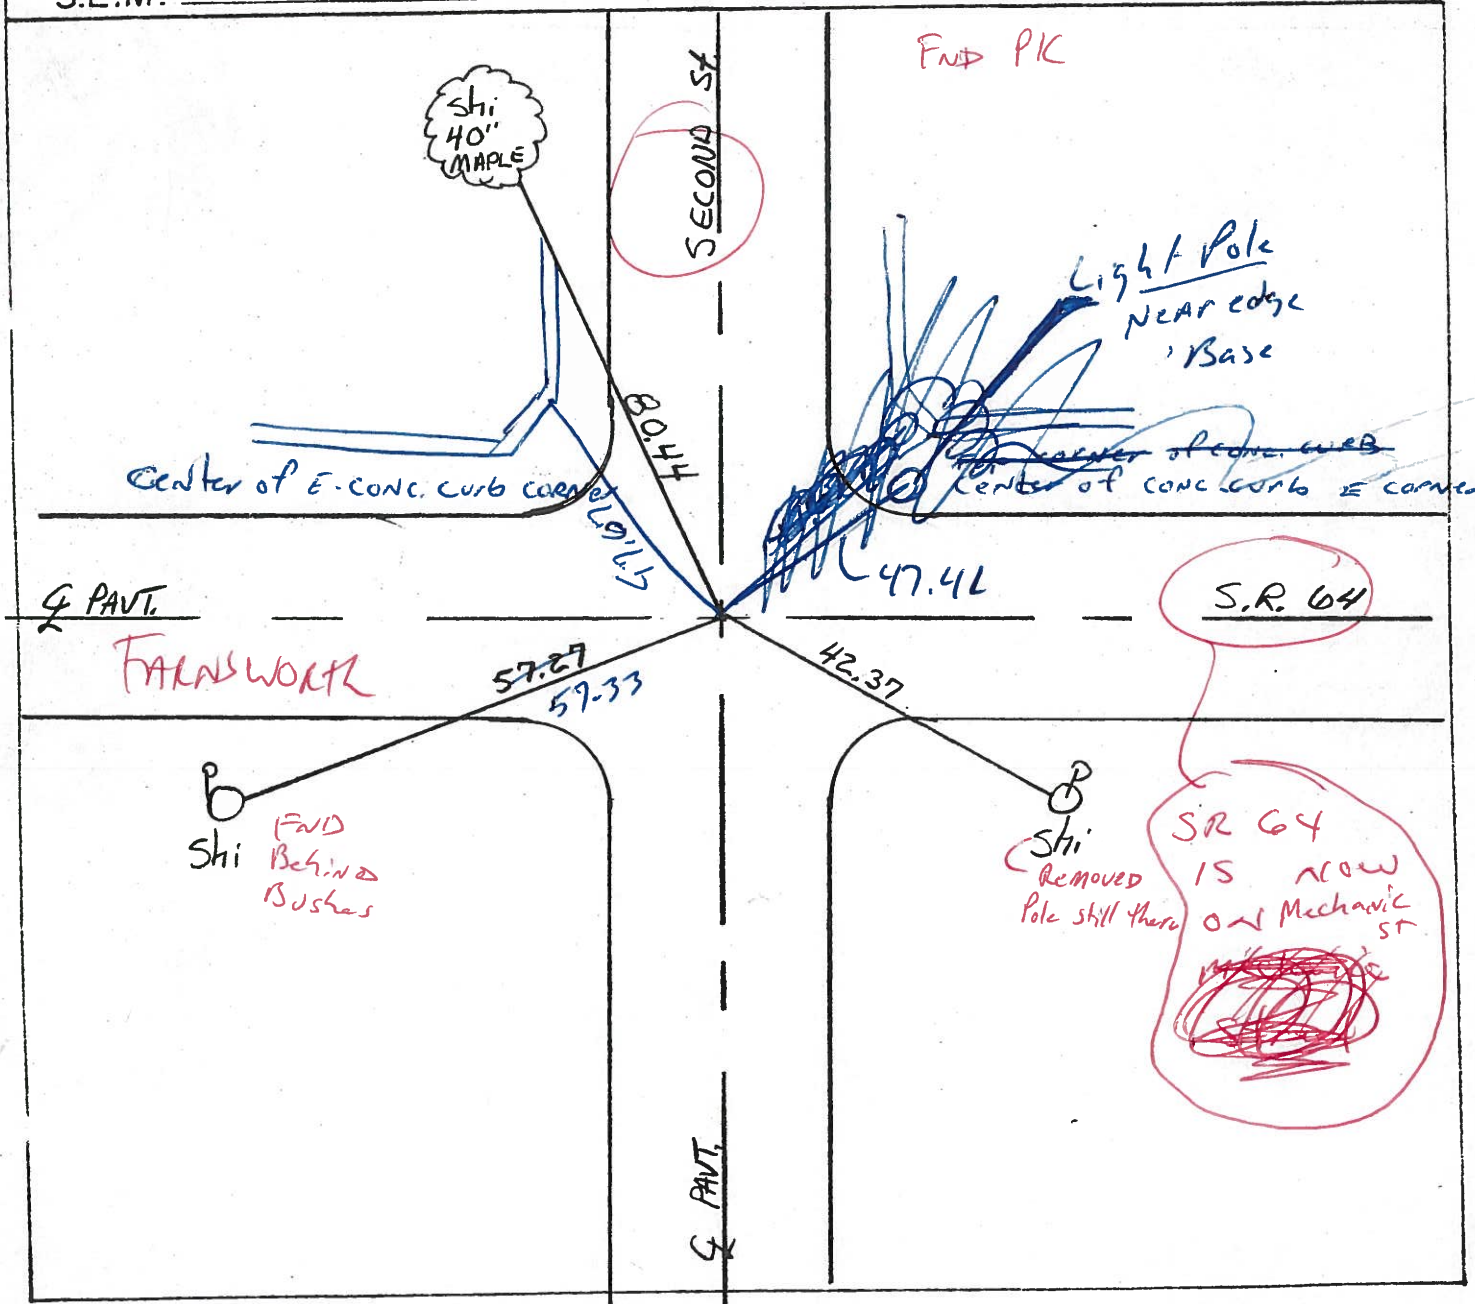 S.E.M.
FND PK
Shi
40"
MAPLE
SECOND St.
Light Pole
Near edge
Base
80.44
corner of conc. curb
Center of E. conc. curb corner
Center of conc. curb E corner
47.42
℄ PAVT.
S.R. 64
FARNSWORTH
57.27
57.33
42.37
Shi
FND
Behind
Bushes
Shi
Removed
Pole still there
SR 64
IS NOW
ON Mechanic
ST
℄ PAVT.